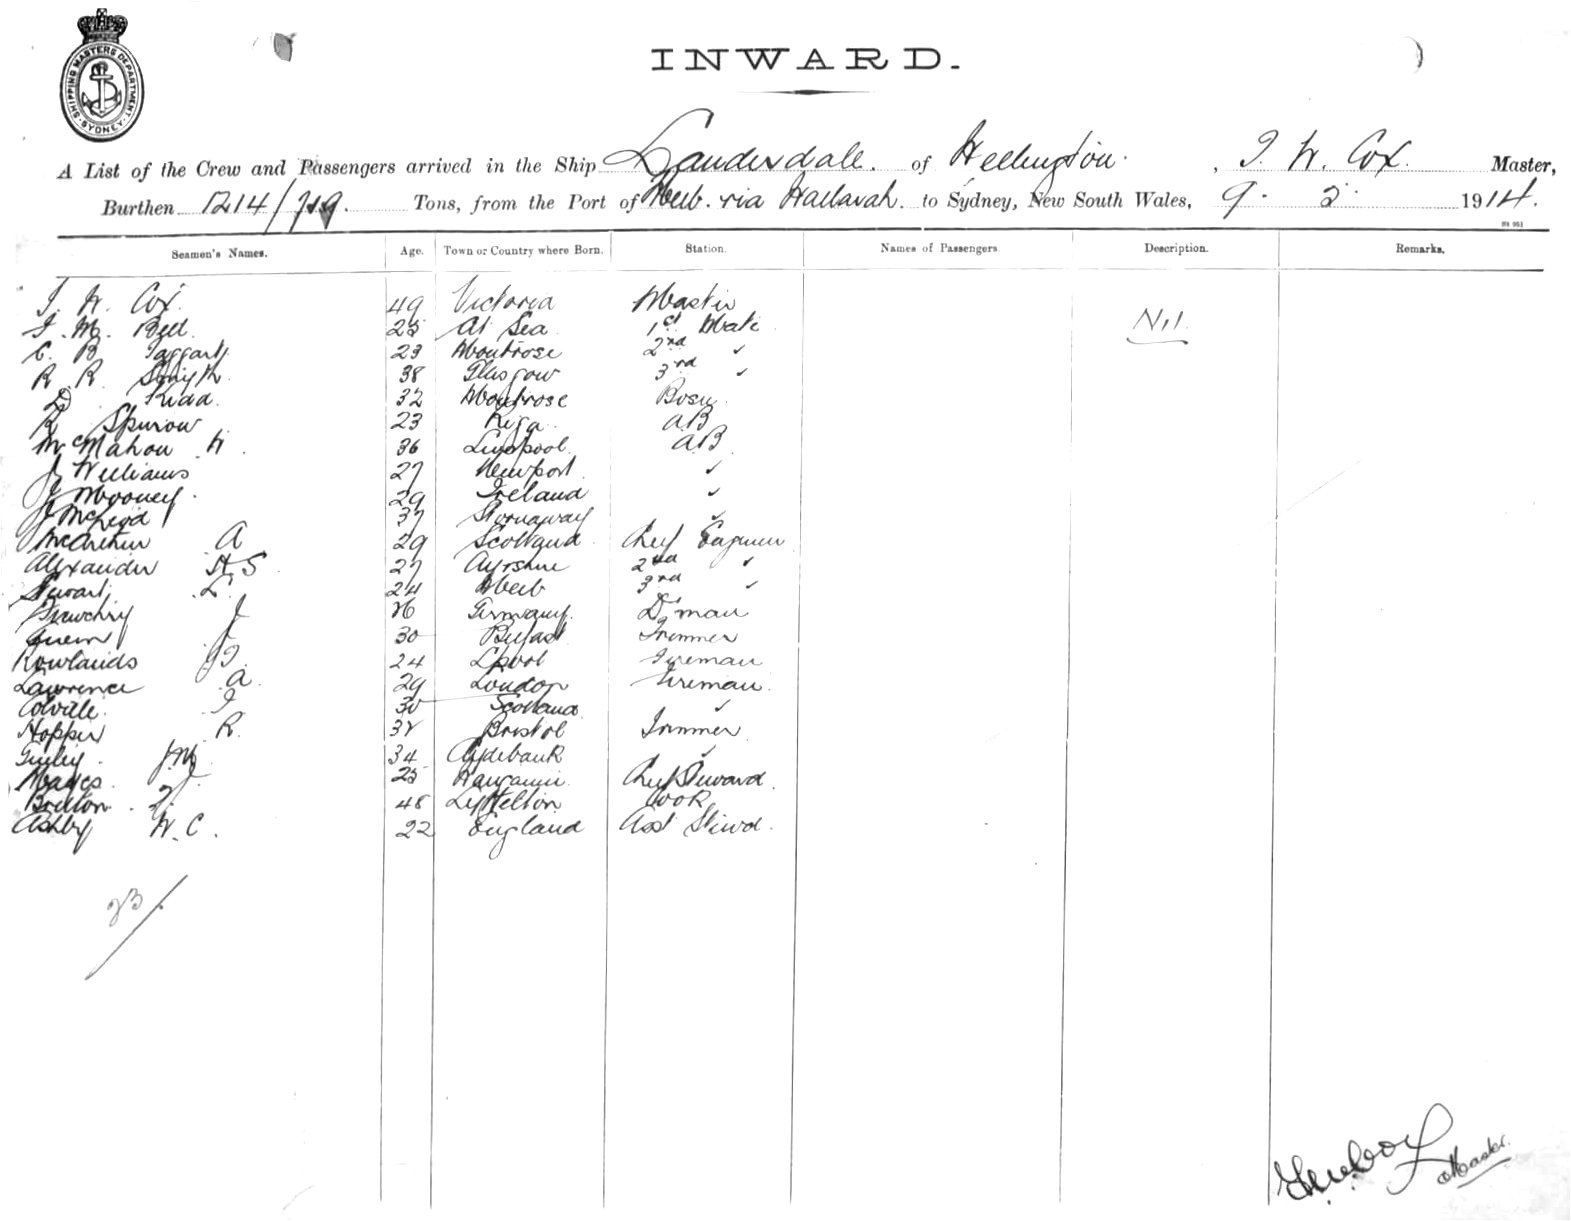 SHIPPING MASTERS DEPARTMENT SYDNEY
INWARD.
A List of the Crew and Passengers arrived in the Ship Lauderdale. of Wellington. , T. W. Cox. Master,
Burthen 1214/719. Tons, from the Port of Melb. via Wallarah. to Sydney, New South Wales, 9. 2. 1914.
Seamen's Names. Age. Town or Country where Born. Station. Names of Passengers. Description. Remarks.
T. W. Cox. 49 Victoria Master
T. M. Bell. 25 At Sea 1st Mate Nil
C. B. Taggart 23 Montrose 2nd ✓
R. R. Smyth 38 Glasgow 3rd ✓
D. Kidd. 32 Montrose Bosn
R Spurow 23 Riga AB
McMahon W. 36 Liverpool AB
J Williams 27 Newport ✓
J Mooney 29 Ireland ✓
J McLeod 37 Stornaway ✓
McArthur A 29 Scotland Chef Enginer
Alexander H S 27 Ayrshire 2nd ✓
Stewart L. 24 Melb 3rd ✓
J 26 Germany D'man
J 30 Belfast Trimmer
Rowlands J 24 L'pool Fireman
Lawrence A. 29 London Fireman.
Colville. T 30 Scotland ✓
Hopper R. 38 Bristol Trimmer
J.M. 34 Clydebank ✓
J 25 Chef Steward.
Britton. T. 48 Lyttelton Cook
Ashby W. C. 22 England Asst Stewd.
23/
Master.